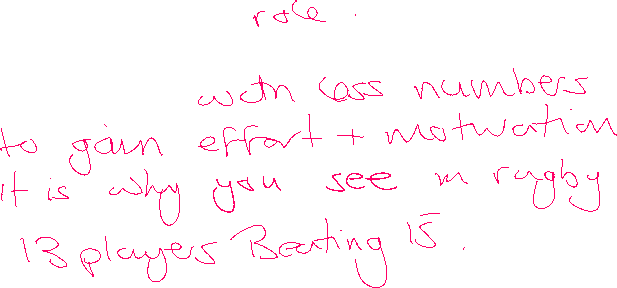 role.
with less numbers
to gain effort + motivation
it is why you see in rugby
13 players Beating 15.